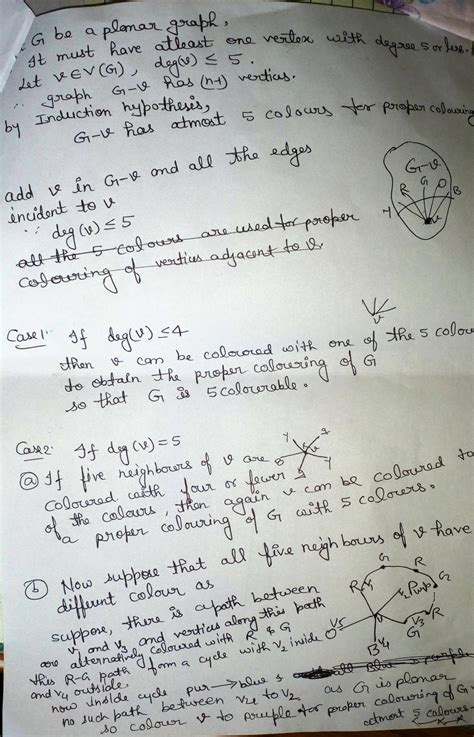 ∵ G be a planar graph,
It must have atleast one vertex with degree 5 or less.
Let v ∈ V(G), deg(v) ≤ 5.
∴ graph G-v has (n-1) vertices.
by Induction hypothesis,
G-v has atmost 5 colours for proper colouring
add v in G-v and all the edges
incident to v
∵ deg(v) ≤ 5
all the 5 colours are used for proper
colouring of vertices adjacent to v.
G-v
R G O
Y B
v
Case1: If deg(v) ≤ 4
then v can be coloured with one of the 5 colou
to obtain the proper colouring of G
so that G is 5 colourable.
v
Case2: If deg(v) = 5
(a) If five neighbours of v are
coloured with four or fewer
of the colours, then again v can be coloured to
a proper colouring of G with 5 colours.
(b) Now suppose that all five neighbours of v have
different colour as
suppose, there is a path between
v1 and v3 and vertices along this path
are alternatively coloured with R & G
this R-G path form a cycle with v2 inside
and v4 outside.
now inside cycle pur → blue s
no such path between v4 to v2 as G is planar
so colour v to purple for proper colouring of G
atmost 5 colours.
G
R R
G
v3
v5
B v4